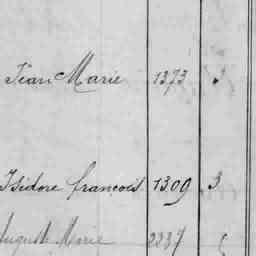 Jean Marie 1373
Isidore françois 1309 3
Auguste Marie 2237